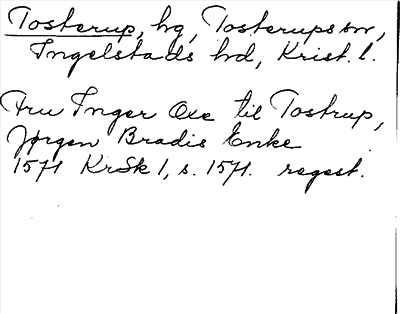 Tosterup, hg, Tosterups sn,
Ingelstads hd, Krist. l.
Fru Inger Oxe til Tostrup,
Jørgen Bradis Enke
1571 KrSk 1, s. 1571. regest.